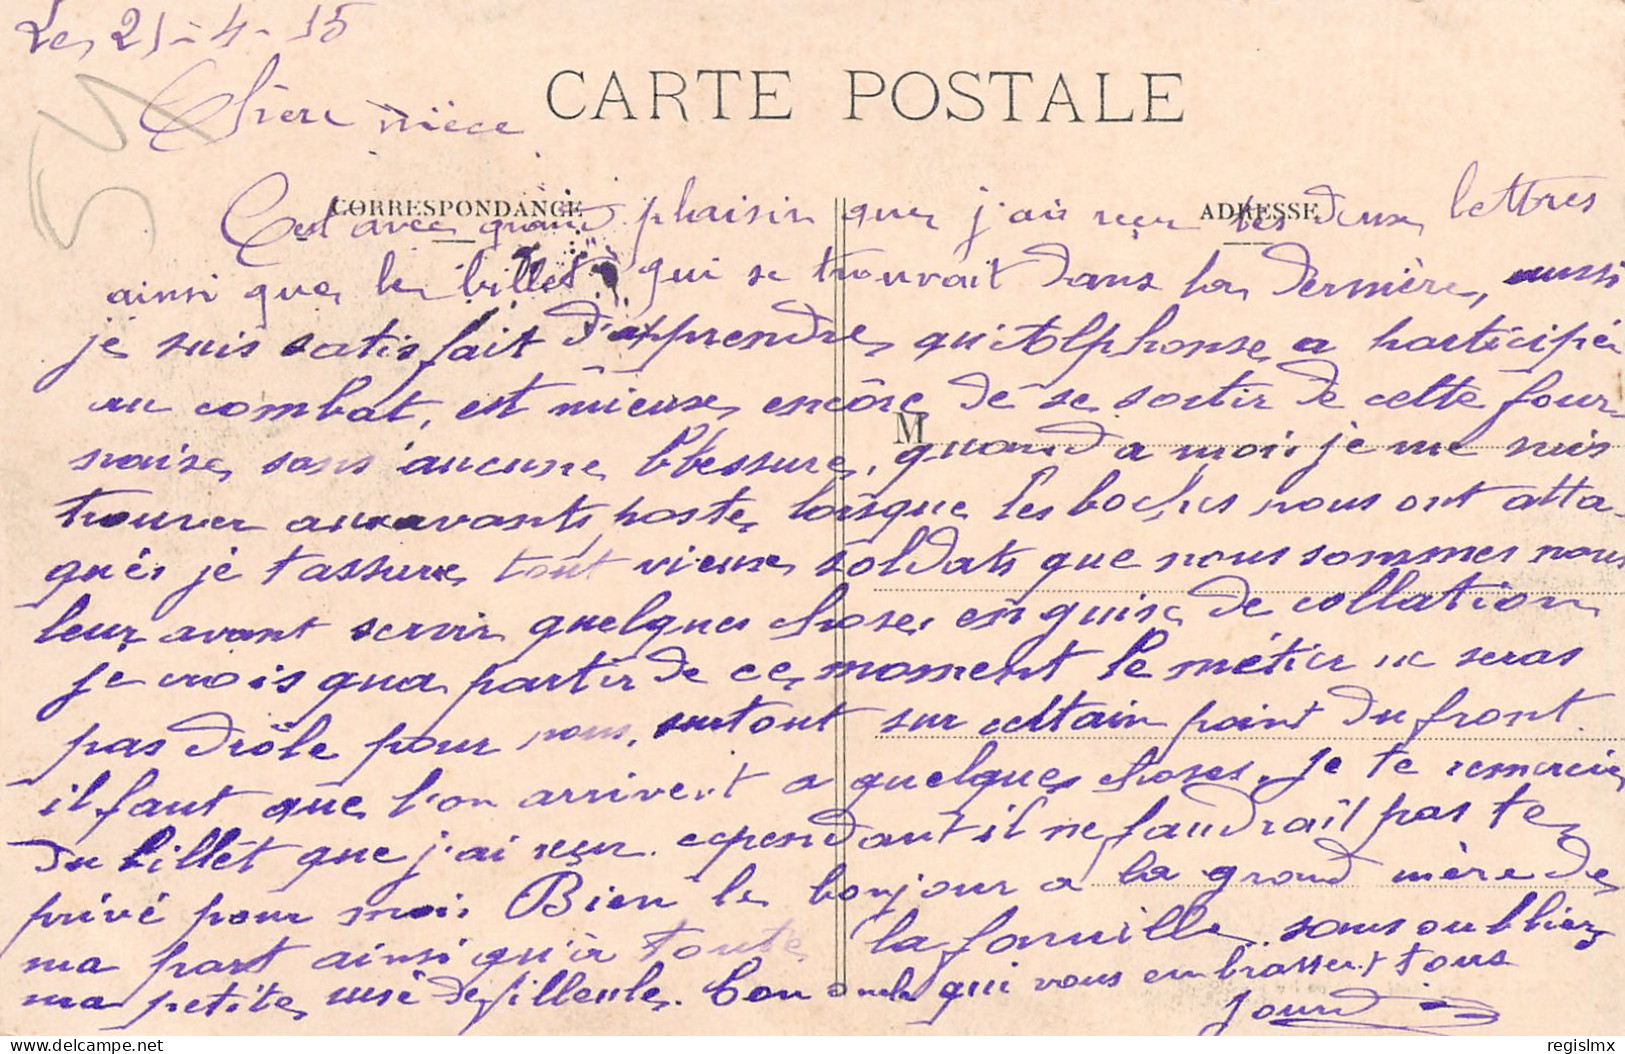 Le 21-4-15
CARTE POSTALE
Chère nièce
CORRESPONDANCE
ADRESSE
C'est avec grand plaisir que j'ai reçu tes deux lettres
ainsi que le billet qui se trouvait dans la dernière, aussi
je suis satisfait d'apprendre qu'Alphonse a participé
au combat, est mieux encôre de se sortir de cette four-
M
naise sans aucune blessure, quand a moi je me suis
trouver aux avants poste lorsque les boches nous ont atta-
qués je t'assure tout vieux soldats que nous sommes nous
leur avont servir quelques chose en guise de collation
je crois qua partir de ce moment le métier ne seras
pas drôle pour nous, surtout sur certain point du front
il faut que l'on arrivent a quelques choses. Je te remercie
du billet que j'ai reçu. cependant il ne faudrait pas te
privé pour moi. Bien le bonjour a la grand mère de
ma part ainsi qu'à toute la famille, sans oublier
ma petite rusé de filleule. Ton oncle qui vous embrassent tous
Jourd
SV
delcampe.net
regislmx